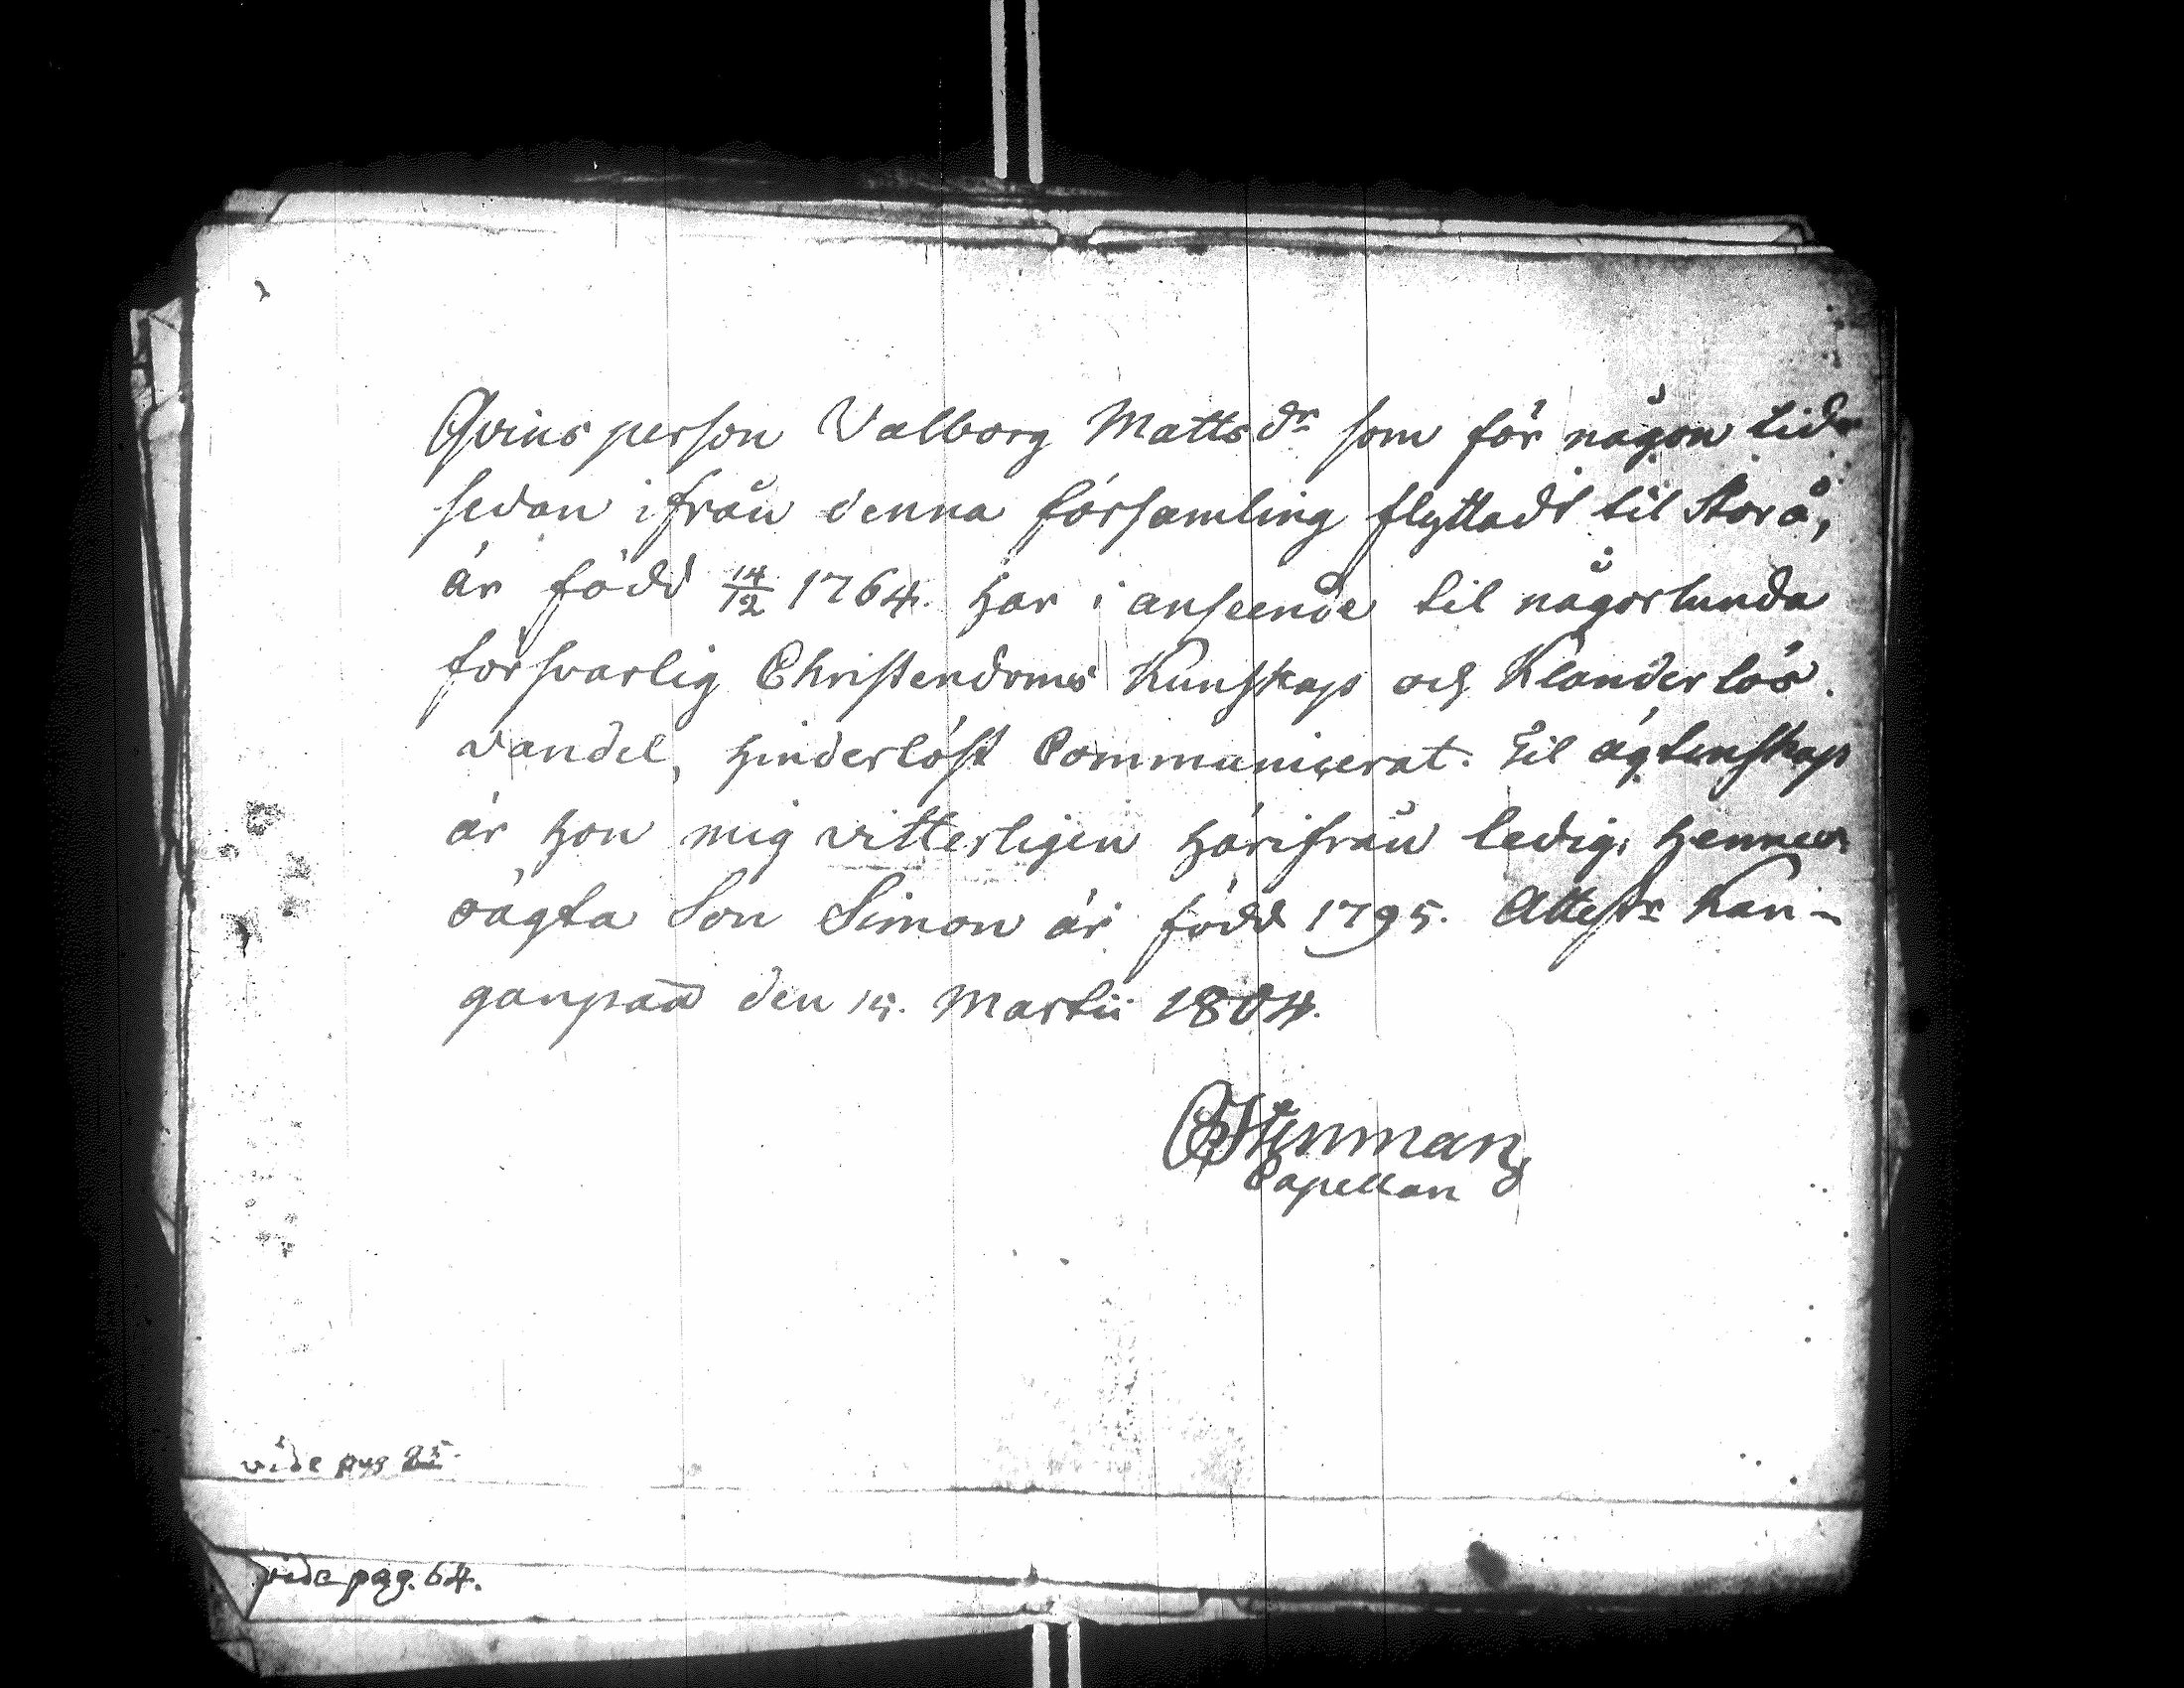 Qvinsperson Valborg Mattsdr som för någon tid
sedan ifrån denna församling flyttadt til Storå,
är född 14/12 1764. har i anseende til någorlunda
försvarlig Christendoms Kunskap och Klanderlös
vandel, hinderlöst Communicerat. Til ägtenskap
är hon mig vitterligen härifrån ledig; hennes
oägta Son Simon är född 1795. Attestr Kan-
ganpää den 15. Martii 1804.
Stenman
Capellan
vide pag 25
vide pag. 64.